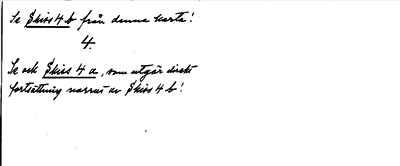 Se Skiss 4 b från denna karta!
4.
Se och Skiss 4 a, som utgör direkt
fortsättning norrut av Skiss 4 b!